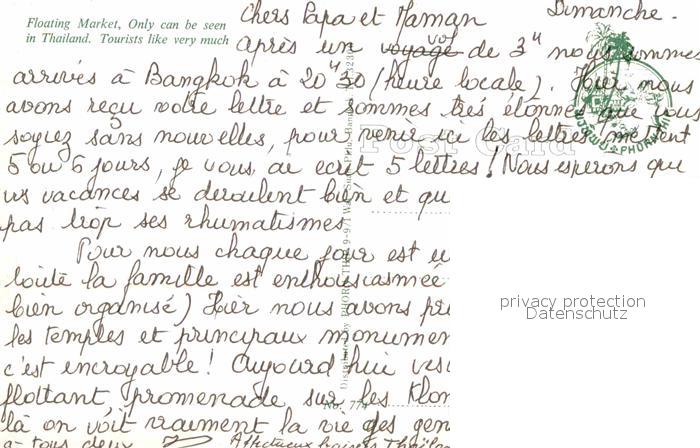 Floating Market, Only can be seen
in Thailand. Tourists like very much
Chers Papa et Maman Dimanche.
après un vol de 3h nous sommes
arrivés à Bangkok à 20h30 (heure locale). Hier nous
avons reçu votre lettre et sommes très étonnés que vous
soyiez sans nouvelles, pour venir ici les lettres mettent
5 ou 6 jours, je vous ai écrit 5 lettres! Nous esperons que
vs vacances se deroulent bien et qu
pas trop ses rhumatismes
Pour nous chaque jour est u
toute la famille est enthousiasmée
bien organisé) Hier nous avons
les temples et principaux monumen
c'est incroyable! Aujourd'hui
flottant promenade sur les Klon
là on voit vraiment la vie des gen
à tous deux Affectueux baisers
Post Card
PHORN THIP
Distributed by PHORN THIP 9-9/1
No. 774
privacy protection
Datenschutz